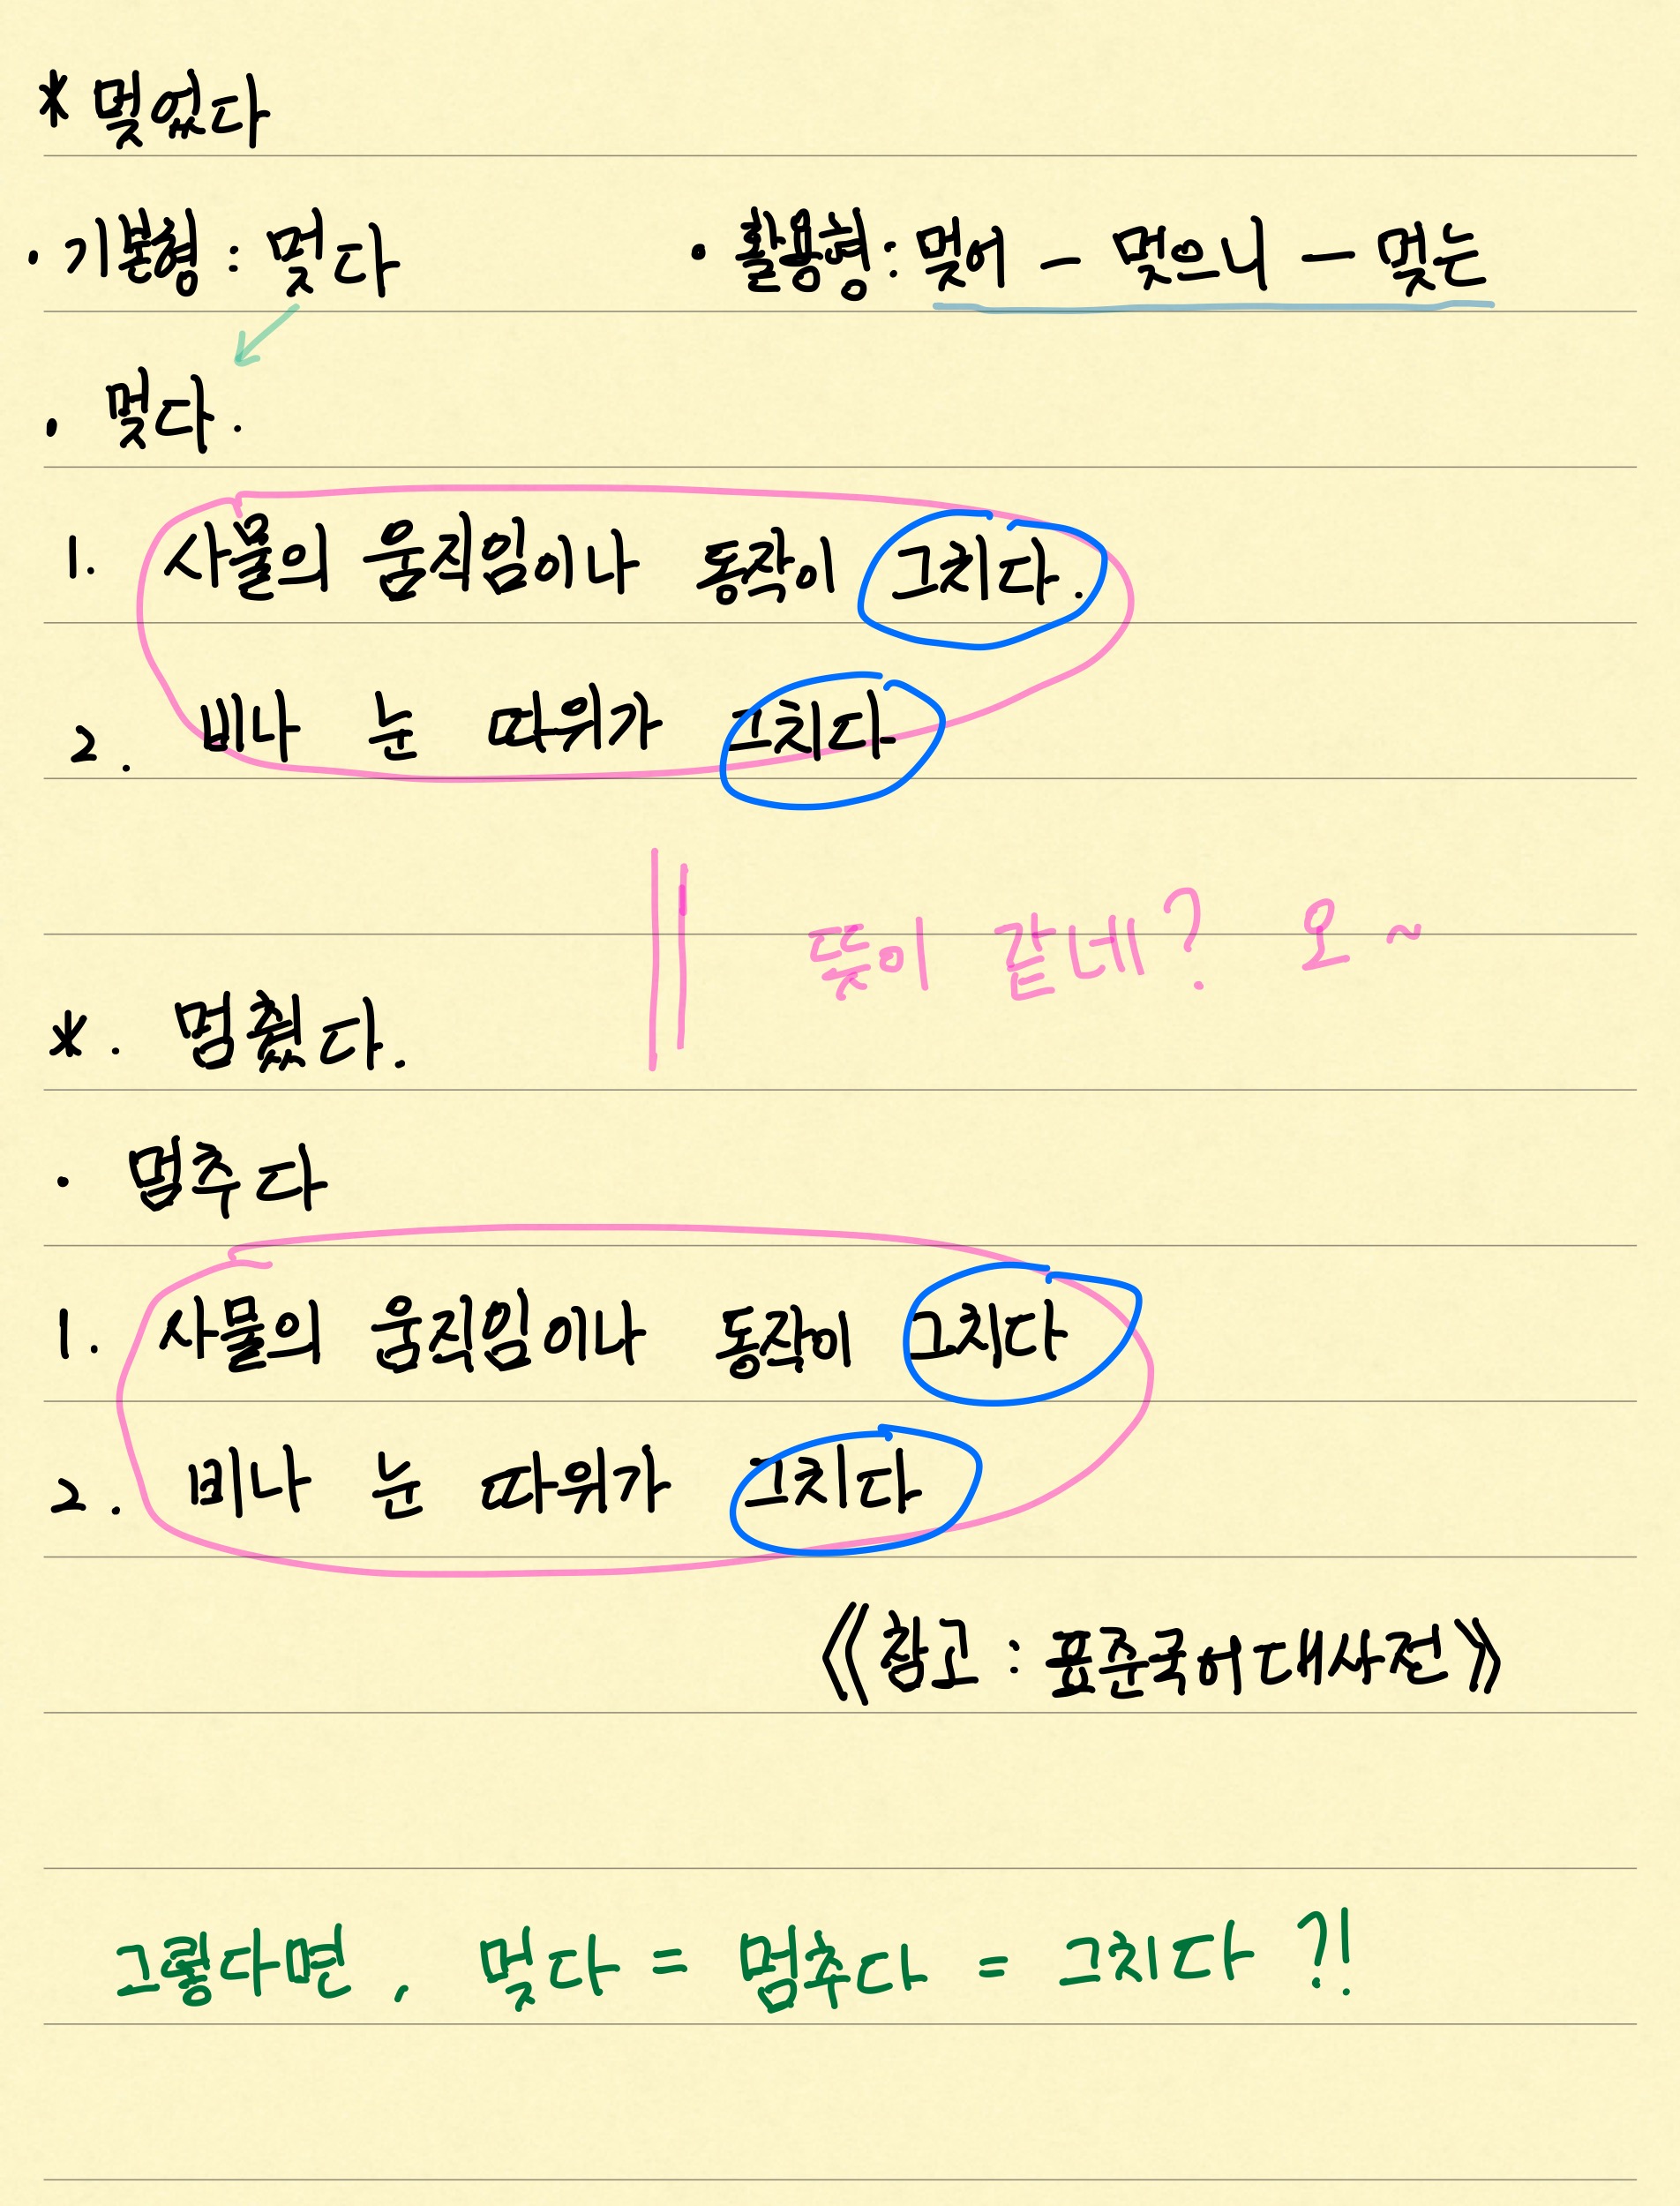 * 멎었다
· 기본형 : 멎다 · 활용형 : 멎어 – 멎으니 – 멎는
· 멎다.
1. 사물의 움직임이나 동작이 그치다.
2. 비나 눈 따위가 그치다
뜻이 같네? 오~
*. 멈췄다.
· 멈추다
1. 사물의 움직임이나 동작이 그치다
2. 비나 눈 따위가 그치다
《참고 : 표준국어대사전》
그렇다면, 멎다 = 멈추다 = 그치다 ?!